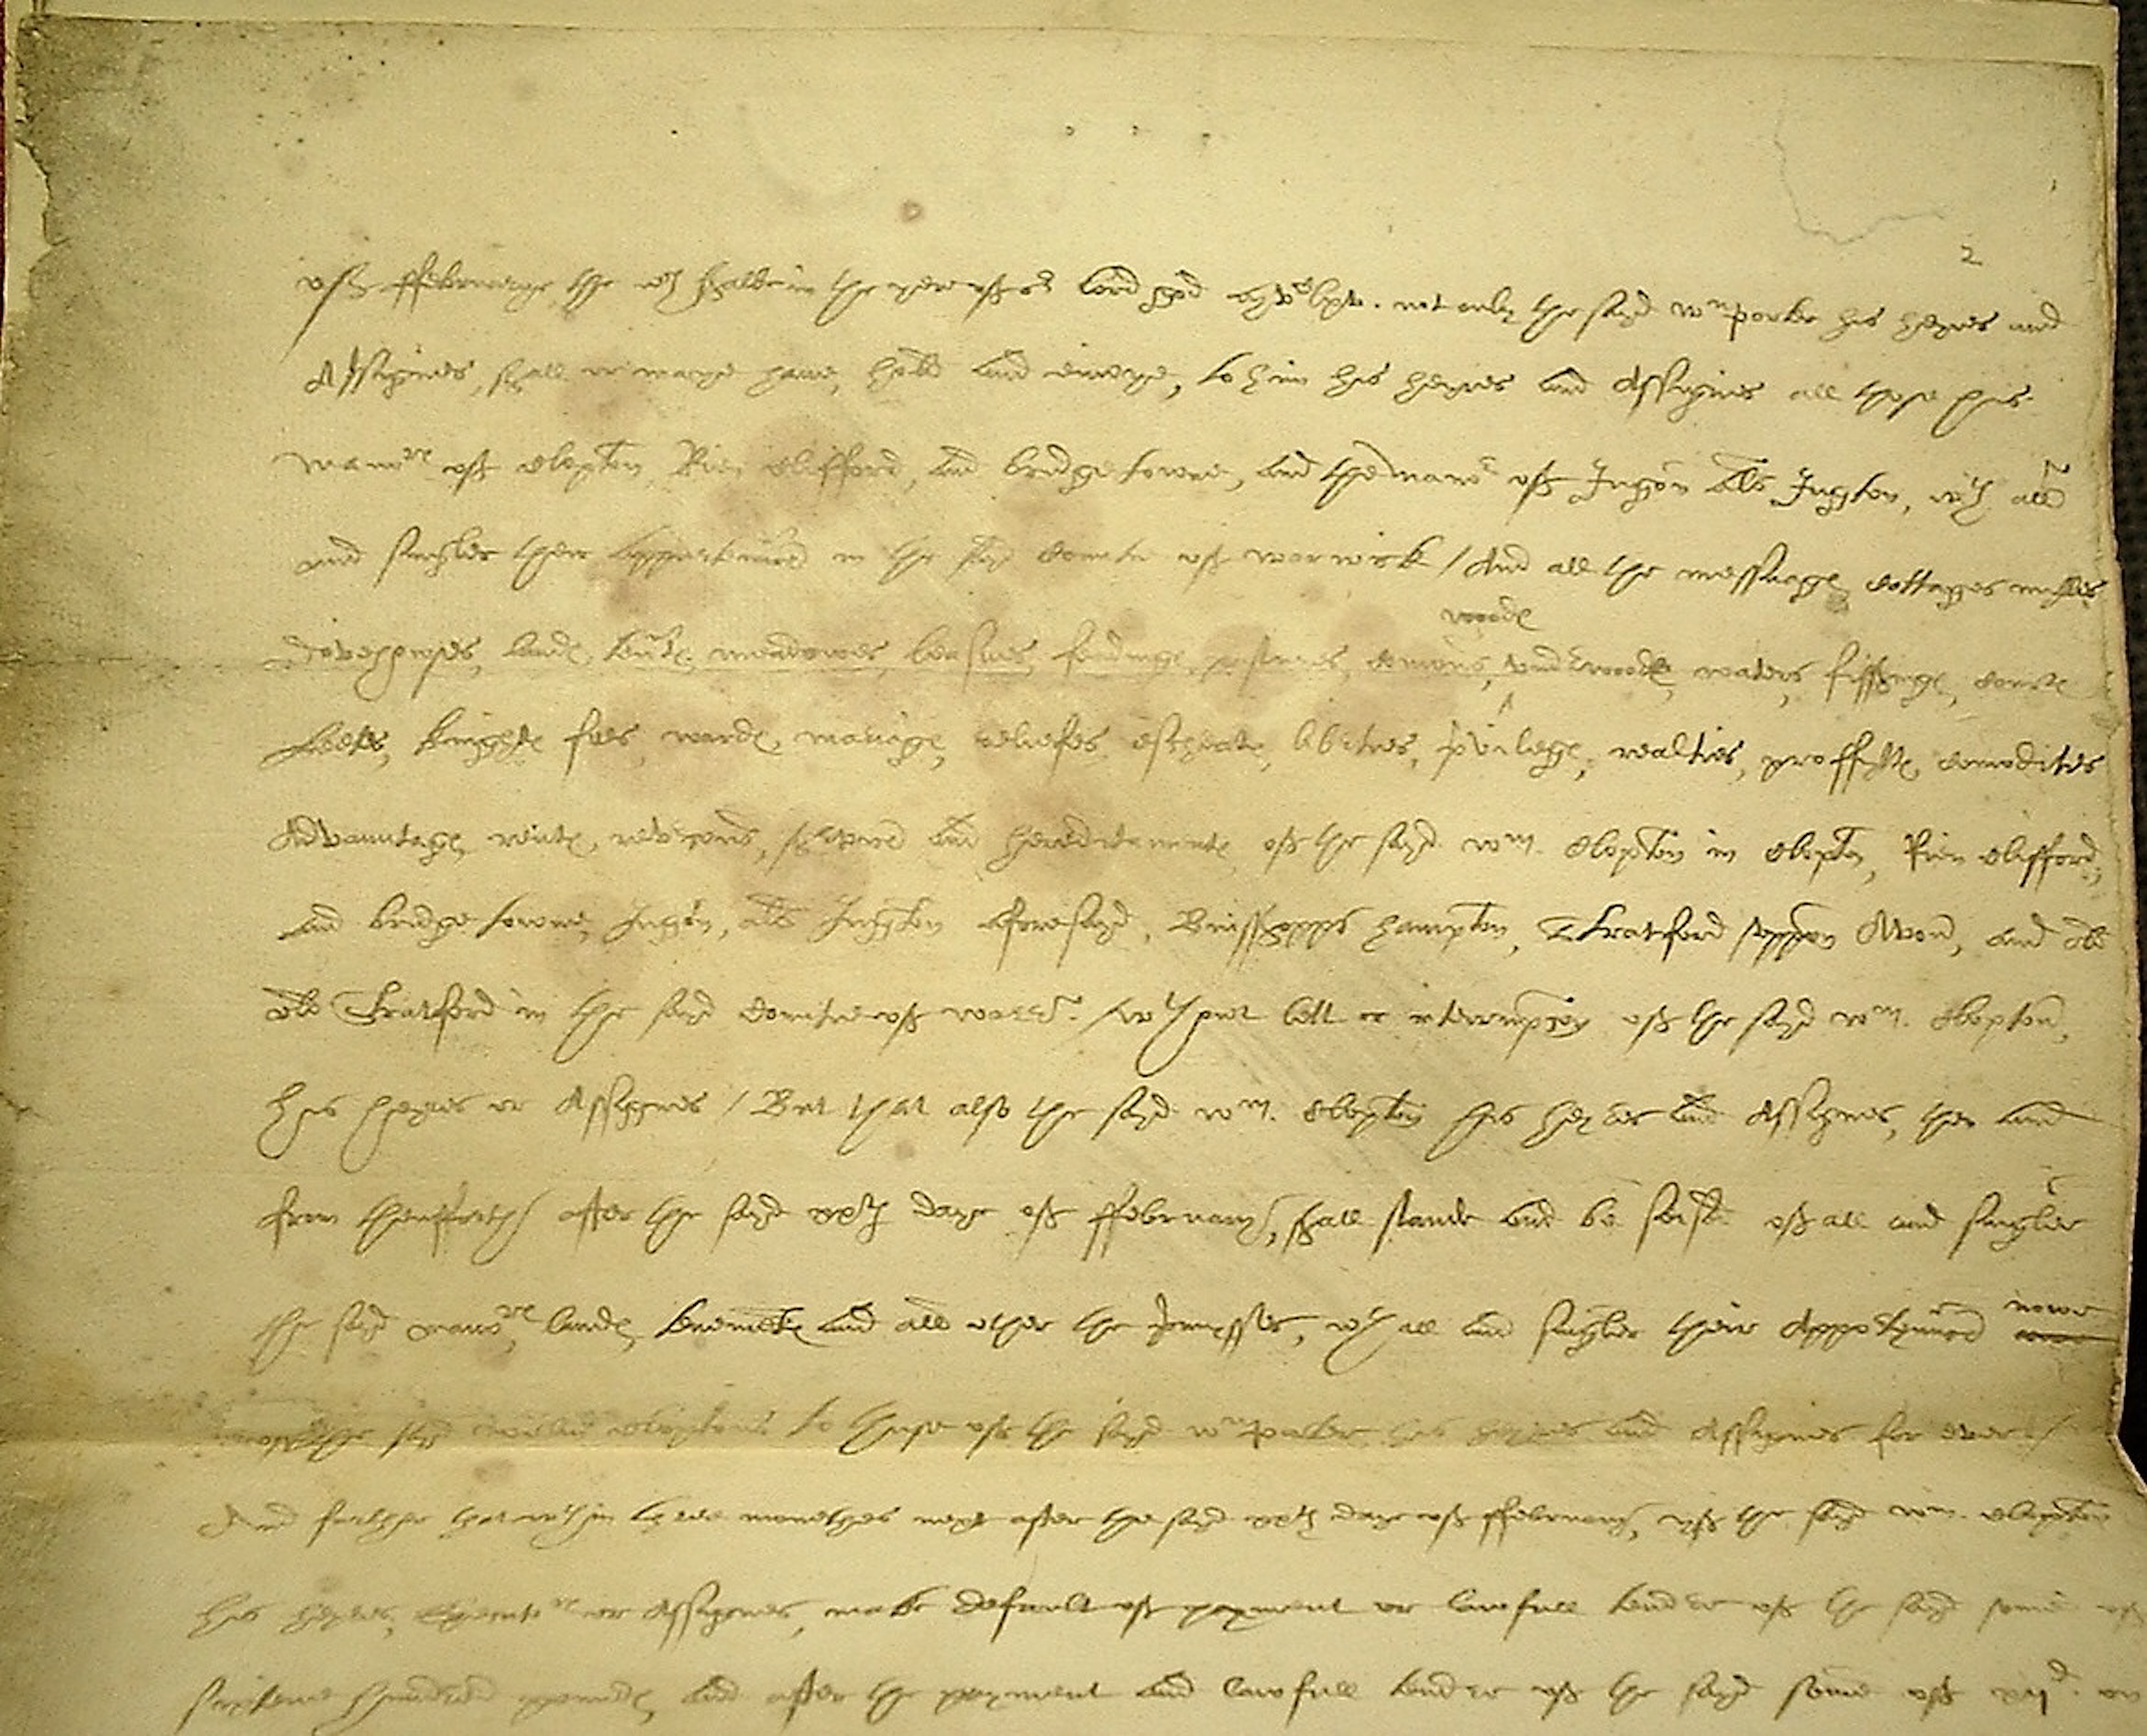 2
off ffebruarye the wch shalbe in the yere off or lord god not only the sayd Wm porter his heyres and
Assignes, shall or maye have, hold and enioye, to him his heyres and Assignes all those his
manors off Clopton, Rien Clifford, and bridgetowne, and the manor off Ingon als Ington, wth all
and singler their appurtennces in the sayd Countie off warwick / And all the messuages Cottages milles
woodes
dovehowses, landes, tentes, meadowes, leasues, feedinges, pastures, comons, underwoodes, waters, fisshinges, courtes
leetes, knightes fees, wardes, mariages, reliefes, escheates, libties, privileges, realties, proffyttes, comodities
Advauntages, rentes, revercons, and hereditamentes off the sayd Wm. Clopton in Clopton, Rien Clifford,
and bridgetowne, Ingon, als Ington aforesayd, Busshopps hampton, Stratford uppon Avon, and old
old Stratford in the sayd Countie off warr. / wthout lett or interrupcon off the sayd Wm. Clopton,
his heyres or Assignes / But that also the sayd Wm. Clopton his heyres and Assignes, then and
from thensforth after the sayd xxth daye off ffebruary, shall stande and be seised off all and singler
the sayd manors, landes, tenemtes and all other the premisses, wth all and singler their Appurtennces nowe
the sayd Clopton to thuse off the sayd Wm porter his heyres and Assignes for ever /
And further that wthin three monethes next after the sayd xxth daye off ffebruary, yff the sayd Wm. Clopton
his heyres, Executors or Assignes, make default off payment or lawfull tender off the sayd some off
sixtene hundred poundes, and after the payment and lawfull tender off the sayd some off xijd. on